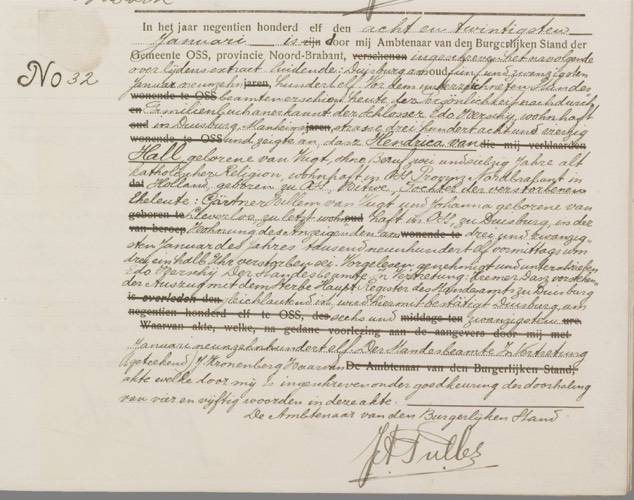 In het jaar negentien honderd elf den acht en twintigsten
Januari is zijn door mij Ambtenaar van den Burgerlijken Stand der
Gemeente OSS, provincie Noord-Brabant, verschenen ingeschreven het navolgende
No 32
overlijdensextract luidende: Duisburg am oud fünf und zwanzigsten
Januar neunzehn jaren, hundert elf. Vor dem unterzeichneten Standes
wonende te OSS beamten erschien heute der Persönlichkeit nach durch
en Familienbuch anerkannt der Schlosser Edo Voerschij, wohnhaft
oud in Duisburg, Manheim jaren, strasse drei hundert acht und vierzig
wonende te OSS und zeigte an, dasz Hendrica van die mij verklaarden
Hall, geborene van Vugt, ohne Beruf, zwei und sechzig Jahre alt
katholischer Religion, wohnhaft in Oss Provinz Nordbrabant in
dat Holland, geboren zu Oss, Witwe, Tochter der verstorbenen
Eheleute: Gärtner Willem van Vugt und Johanna geborene van
geboren te zuletzt woh oud haft in Oss, zu Duisburg, in der
van beroep Wohnung des Anzeigenden am wonende te drei und zwanzig
sten Januar des Jahres tausend neunhundert elf vormittags um
drei ein halb Uhr verstorben sei. Vorgelesen genehmigt und unterschrieben
Edo Voerschij Der Standesbeamte in Vertretung: Deemer Dasz vorstehen
der Auszug mit dem Sterbe Haupt Register des Standesamts zu Duisburg
is overleden den gleichlautend ist, wird hiermit bestätigt Duisburg, am
negentien honderd elf te OSS, des sechs und middags ten zwanzigsten ure.
Waarvan akte, welke, na gedane voorlezing aan de aangevers door mij met
Januari neunzehnhundert elf. Der Standesbeamte In Vertretung
(geteekend) J. Kronenberg Waarvan De Ambtenaar van den Burgerlijken Stand,
akte welke door mij is ingeschreven onder goedkeuring der doorhaling
van vier en vijftig woorden in deze akte.
De Ambtenaar van den Burgerlijken Stand.